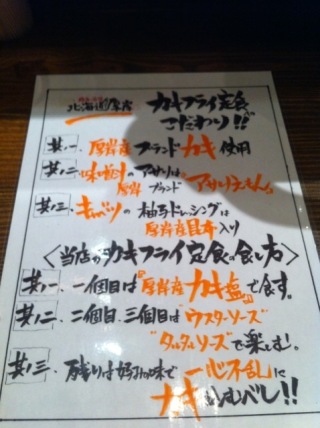 北海道厚岸
カキフライ定食
こだわり!!
其ノ一、厚岸産ブランドカキ使用
其ノ二、味噌汁のアサリは、
厚岸ブランド アサリえもん。
其ノ三、キャベツの柚子ドレッシングは
厚岸産昆布入り
〈当店のカキフライ定食の食し方〉
其ノ一、一個目は『厚岸産カキ塩』で食す。
其ノ二、二個目、三個目は"ウスターソース"
"タルタルソース"で楽しむ。
其ノ三、残りは好みの味で一心不乱に
カキ込むべし!!